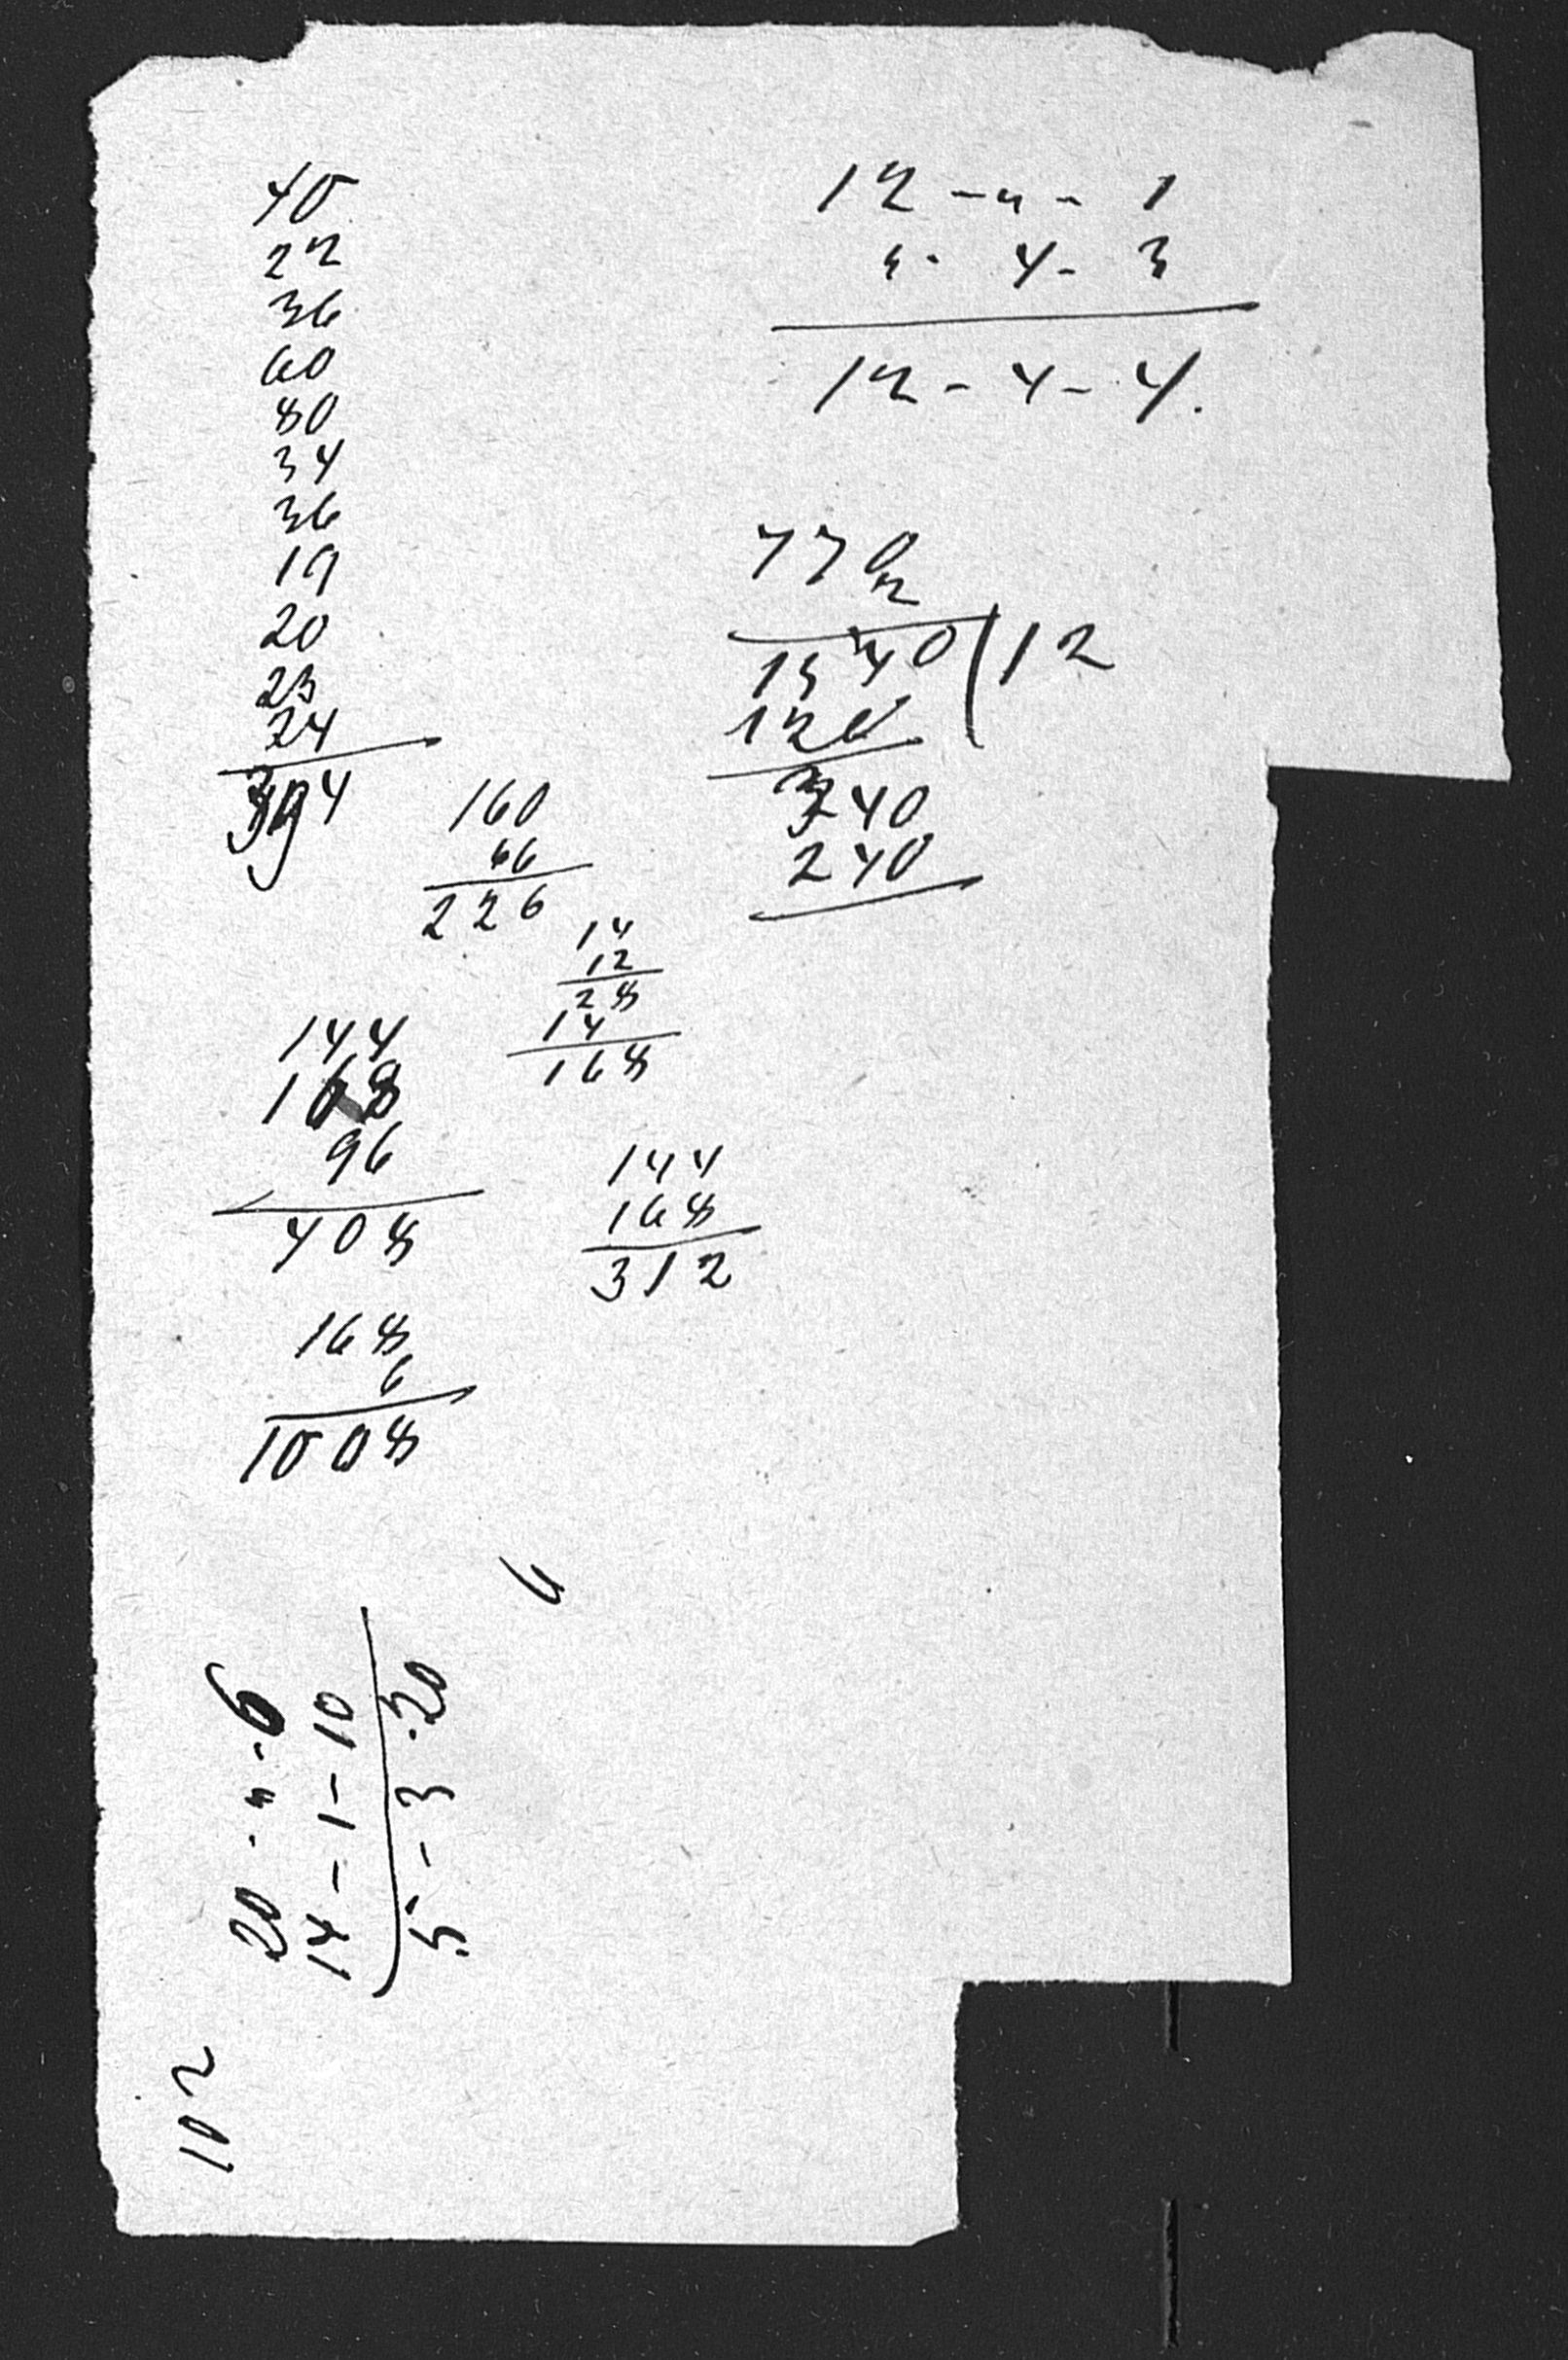 40
22
36
60
80
34
36
19
20
23
24
394
12 - " - 1
" - 4 - 3
12 - 4 - 4.
770
2
1540 | 12
120
340
240
160
66
226
14
12
28
14
168
144
168
96
408
144
168
312
168
6
1008
6
20 - " - 6
14 - 1 - 10
5 - 3 - 20
102